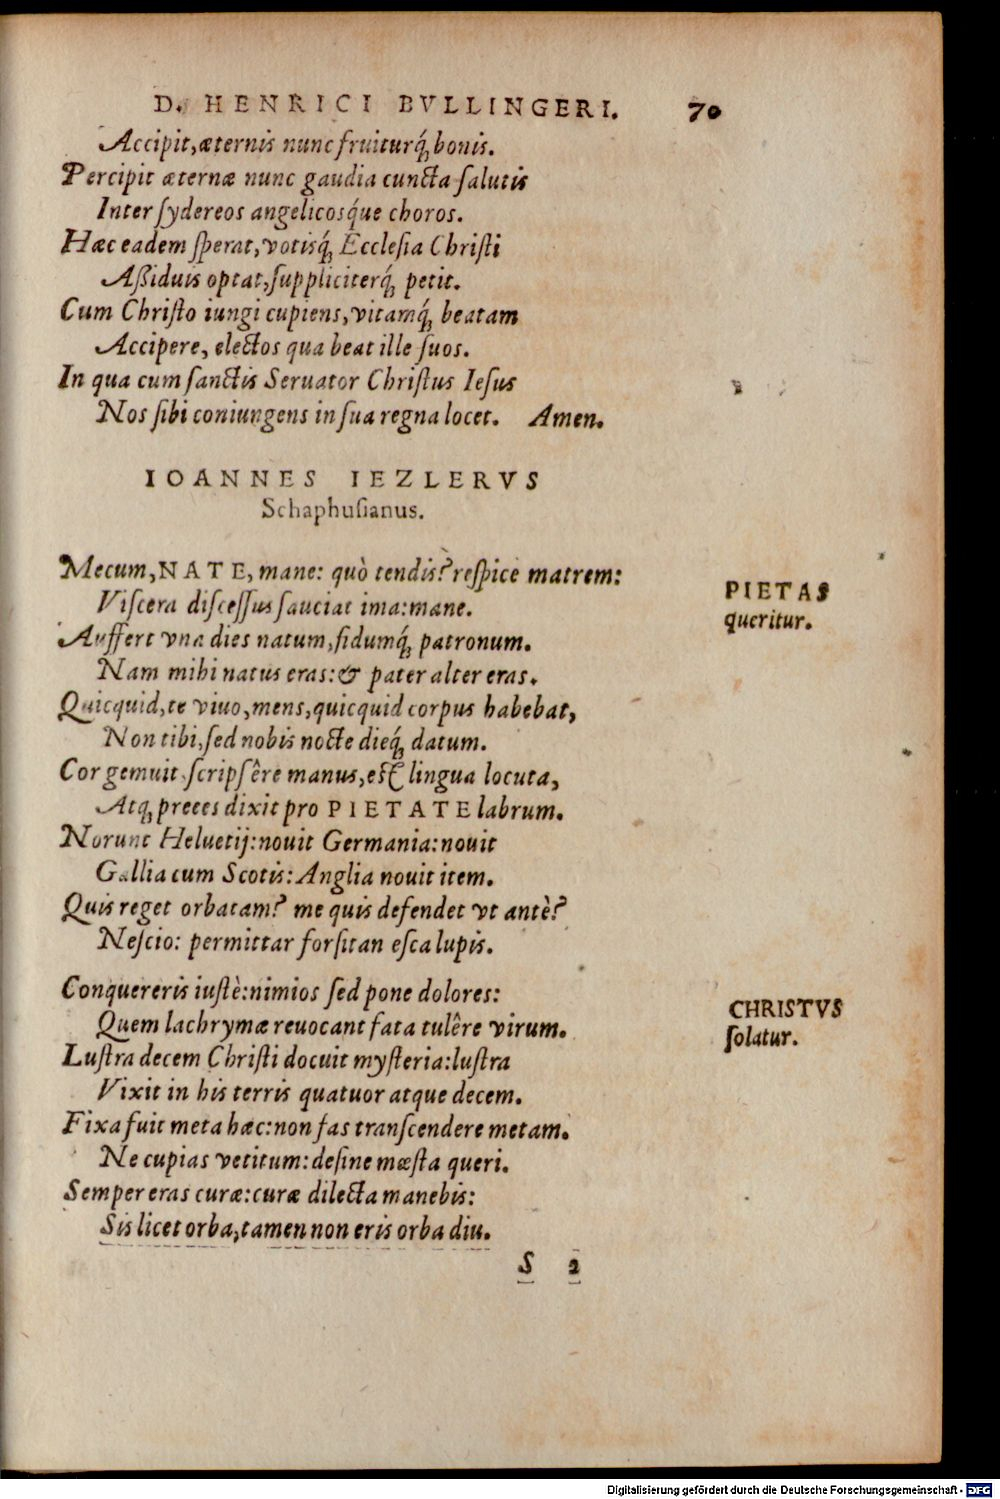 D. HENRICI BVLLINGERI. 70
Accipit, æternis nunc fruiturq́; bonis.
Percipit æternæ nunc gaudia cuncta salutis
Inter sydereos angelicosq́ue choros.
Hæc eadem sperat, votisq́; Ecclesia Christi
Aßiduis optat, suppliciterq́; petit.
Cum Christo iungi cupiens, vitamq́; beatam
Accipere, electos qua beat ille suos.
In qua cum sanctis Seruator Christus Iesus
Nos sibi coniungens in sua regna locet. Amen.
IOANNES IEZLERVS
Schaphusianus.
Mecum, NATE, mane: quò tendis? respice matrem:
Viscera discessus sauciat ima: mane.
PIETAS
queritur.
Auffert vna dies natum, fidumq́; patronum.
Nam mihi natus eras: & pater alter eras.
Quicquid, te viuo, mens, quicquid corpus habebat,
Non tibi, sed nobis nocte dieq́; datum.
Cor gemuit, scripsêre manus, est lingua locuta,
Atq; preces dixit pro PIETATE labrum.
Norunt Heluetij: nouit Germania: nouit
Gallia cum Scotis: Anglia nouit item.
Quis reget orbatam? me quis defendet vt antè?
Nescio: permittar forsitan esca lupis.
Conquereris iustè: nimios sed pone dolores:
Quem lachrymæ reuocant fata tulêre virum.
CHRISTVS
solatur.
Lustra decem Christi docuit mysteria: lustra
Vixit in his terris quatuor atque decem.
Fixa fuit meta hæc: non fas transcendere metam.
Ne cupias vetitum: desine mæsta queri.
Semper eras curæ: curæ dilecta manebis:
Sis licet orba, tamen non eris orba diu.
S 2
Digitalisierung gefördert durch die Deutsche Forschungsgemeinschaft - DFG